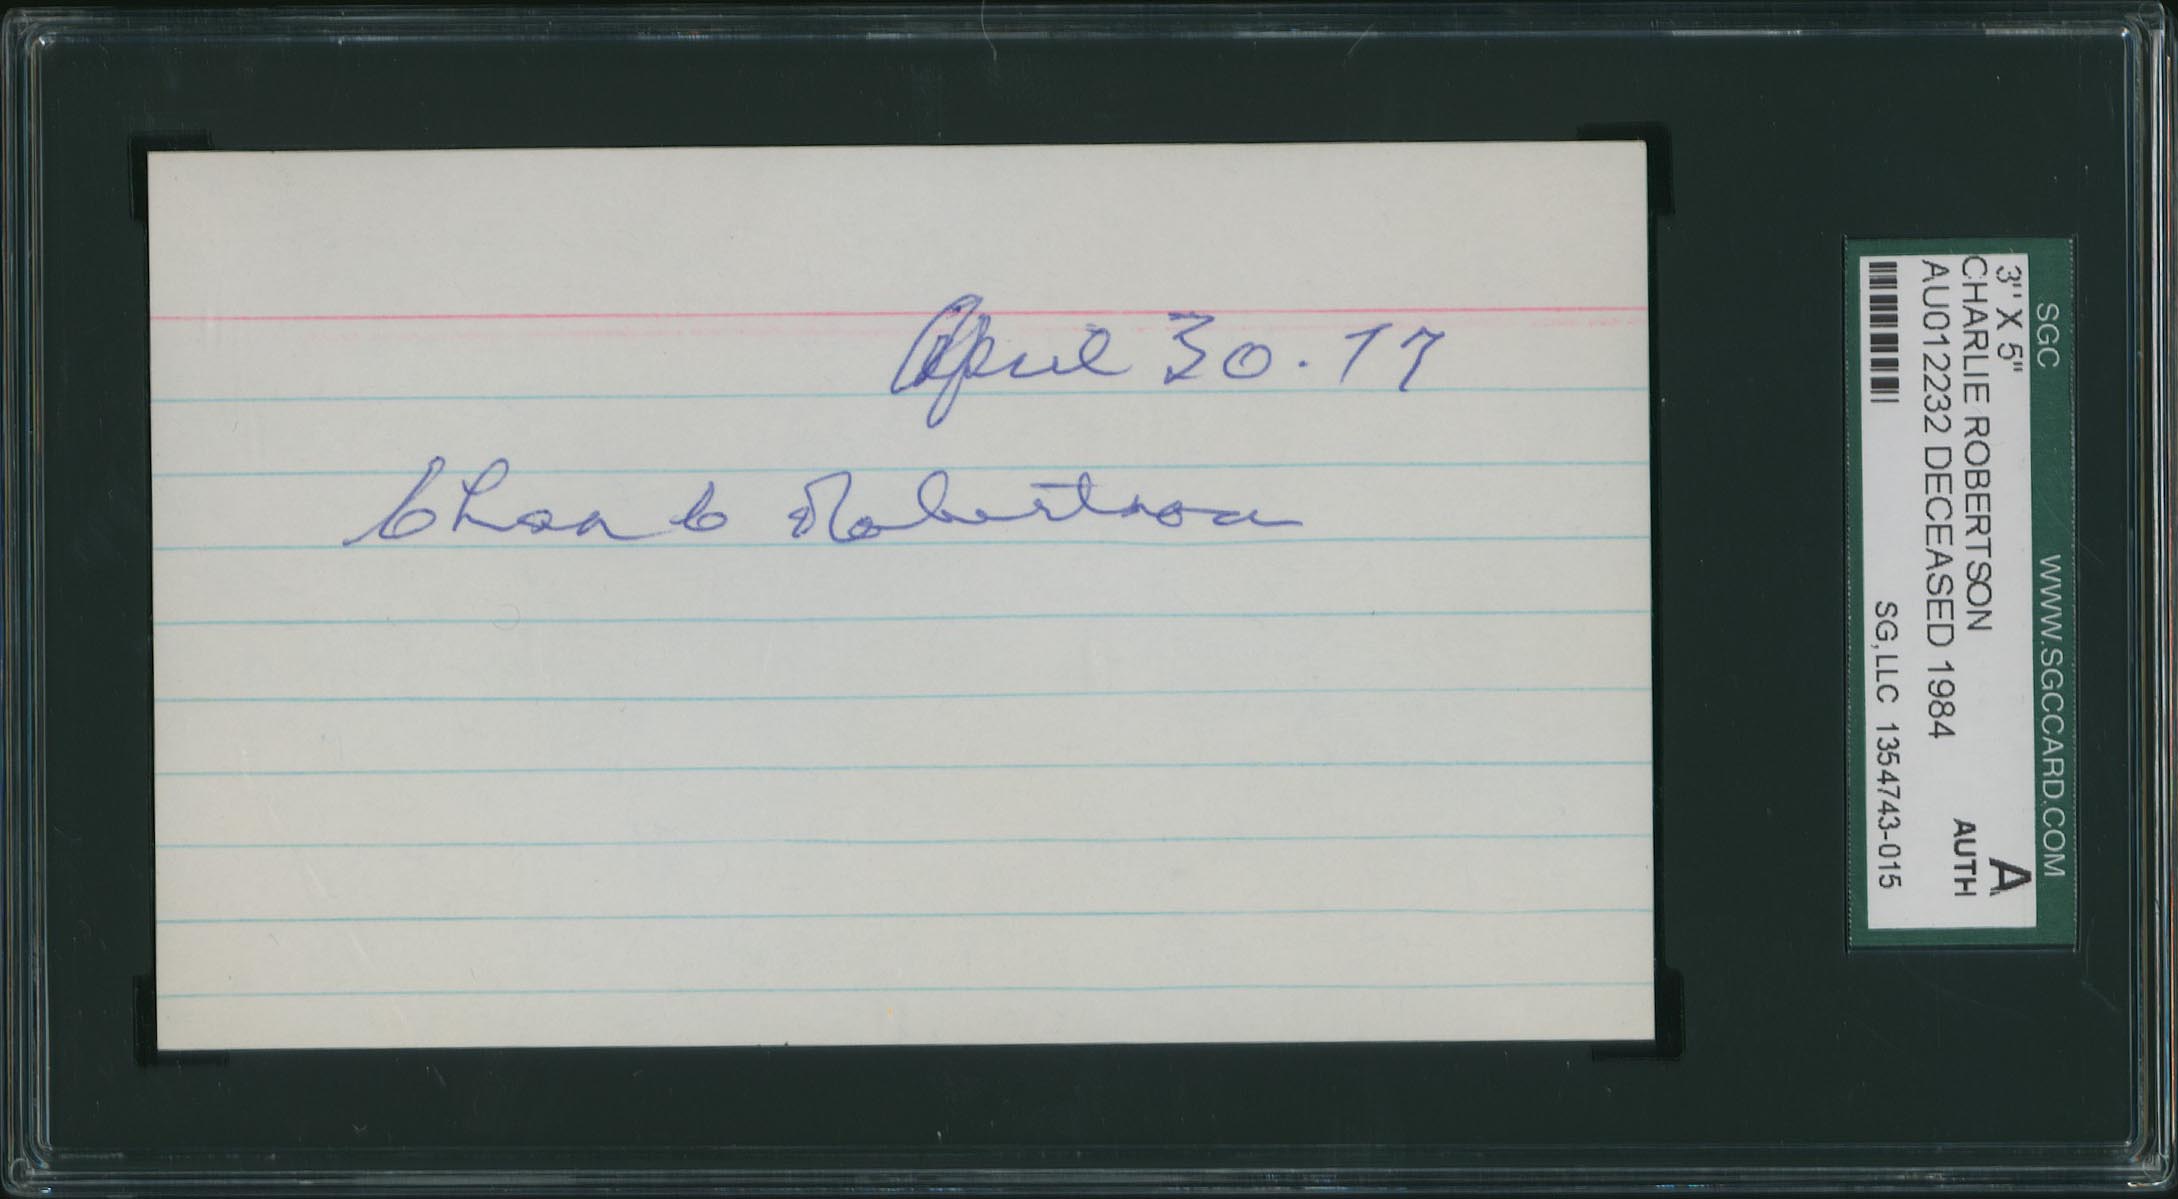 April 30. 77
Chas C Robertson
SGC WWW.SGCCARD.COM
3" X 5" A
CHARLIE ROBERTSON AUTH
AU012232 DECEASED 1984
SG, LLC 1354743-015